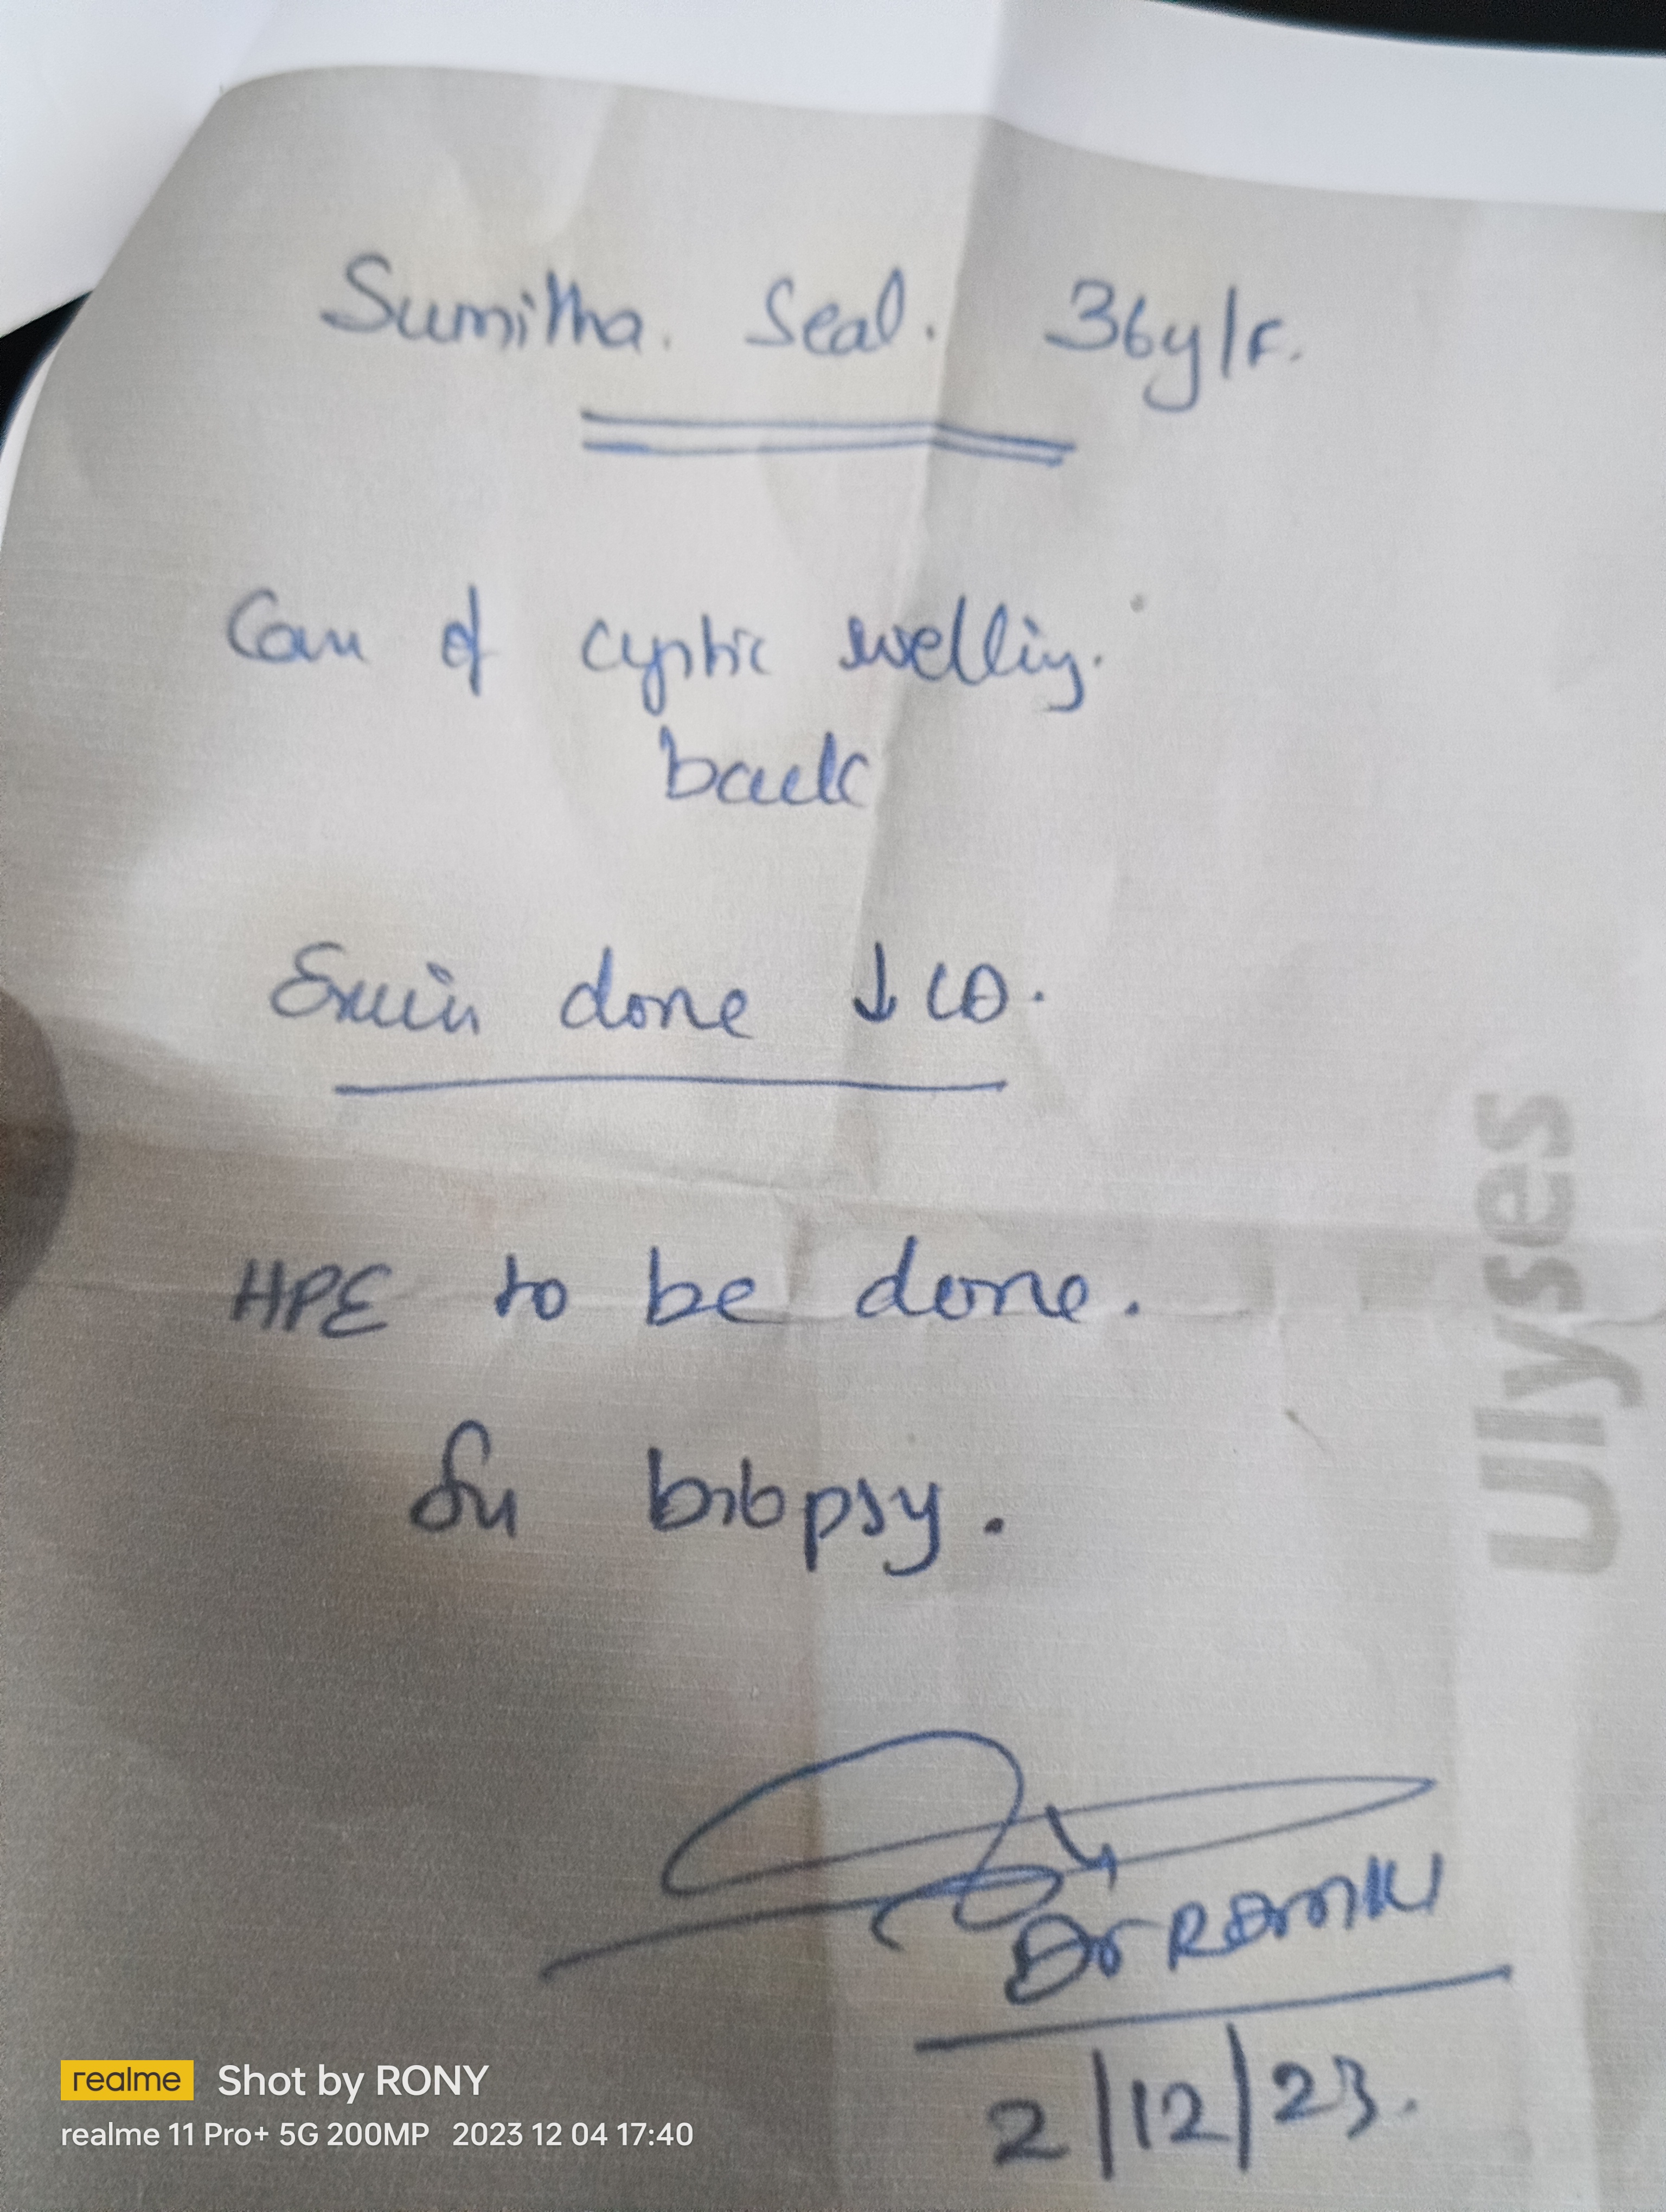 Sumitha. Seal. 36y/F.
Case of cystic swelling.
back
Excision done ↓ LA.
HPE to be done.
for biopsy.
Dr
2/12/23.
Ulyses
realme Shot by RONY
realme 11 Pro+ 5G 200MP 2023 12 04 17:40